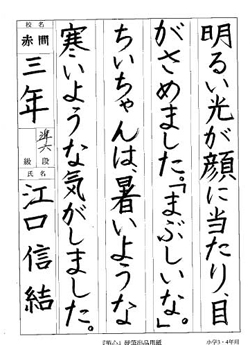 明るい光が顔に当たり、目
がさめました。「まぶしいな。」
ちいちゃんは、暑いような
寒いような気がしました。
校名
赤間
三年
準六
級段
氏名
江口信結
小学3・4年用